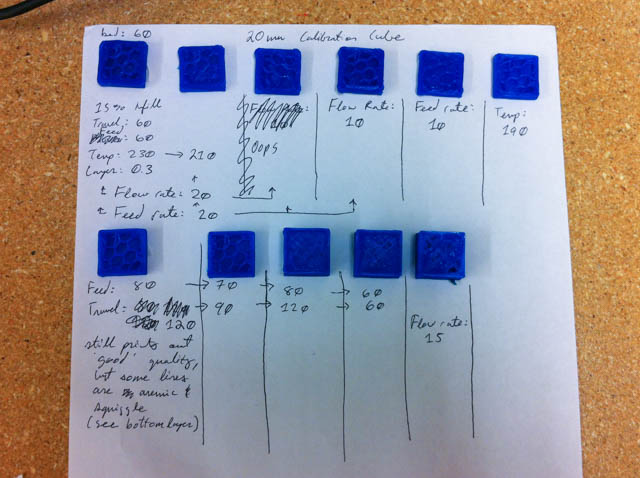 bed: 60
20mm Calibration Cube
15% Infill
Travel: 60
Feed : 60
Temp: 230 → 210
Layer: 0.3
Flow rate: 20
Feed rate: 20
Oops
Flow Rate:
10
Feed rate:
10
Temp:
190
Feed: 80 → 70 → 80 → 60
Travel: 120 → 90 → 120 → 60
still prints out
"good" quality,
but some lines
are anemic &
squiggle
(see bottom layer)
Flow rate:
15